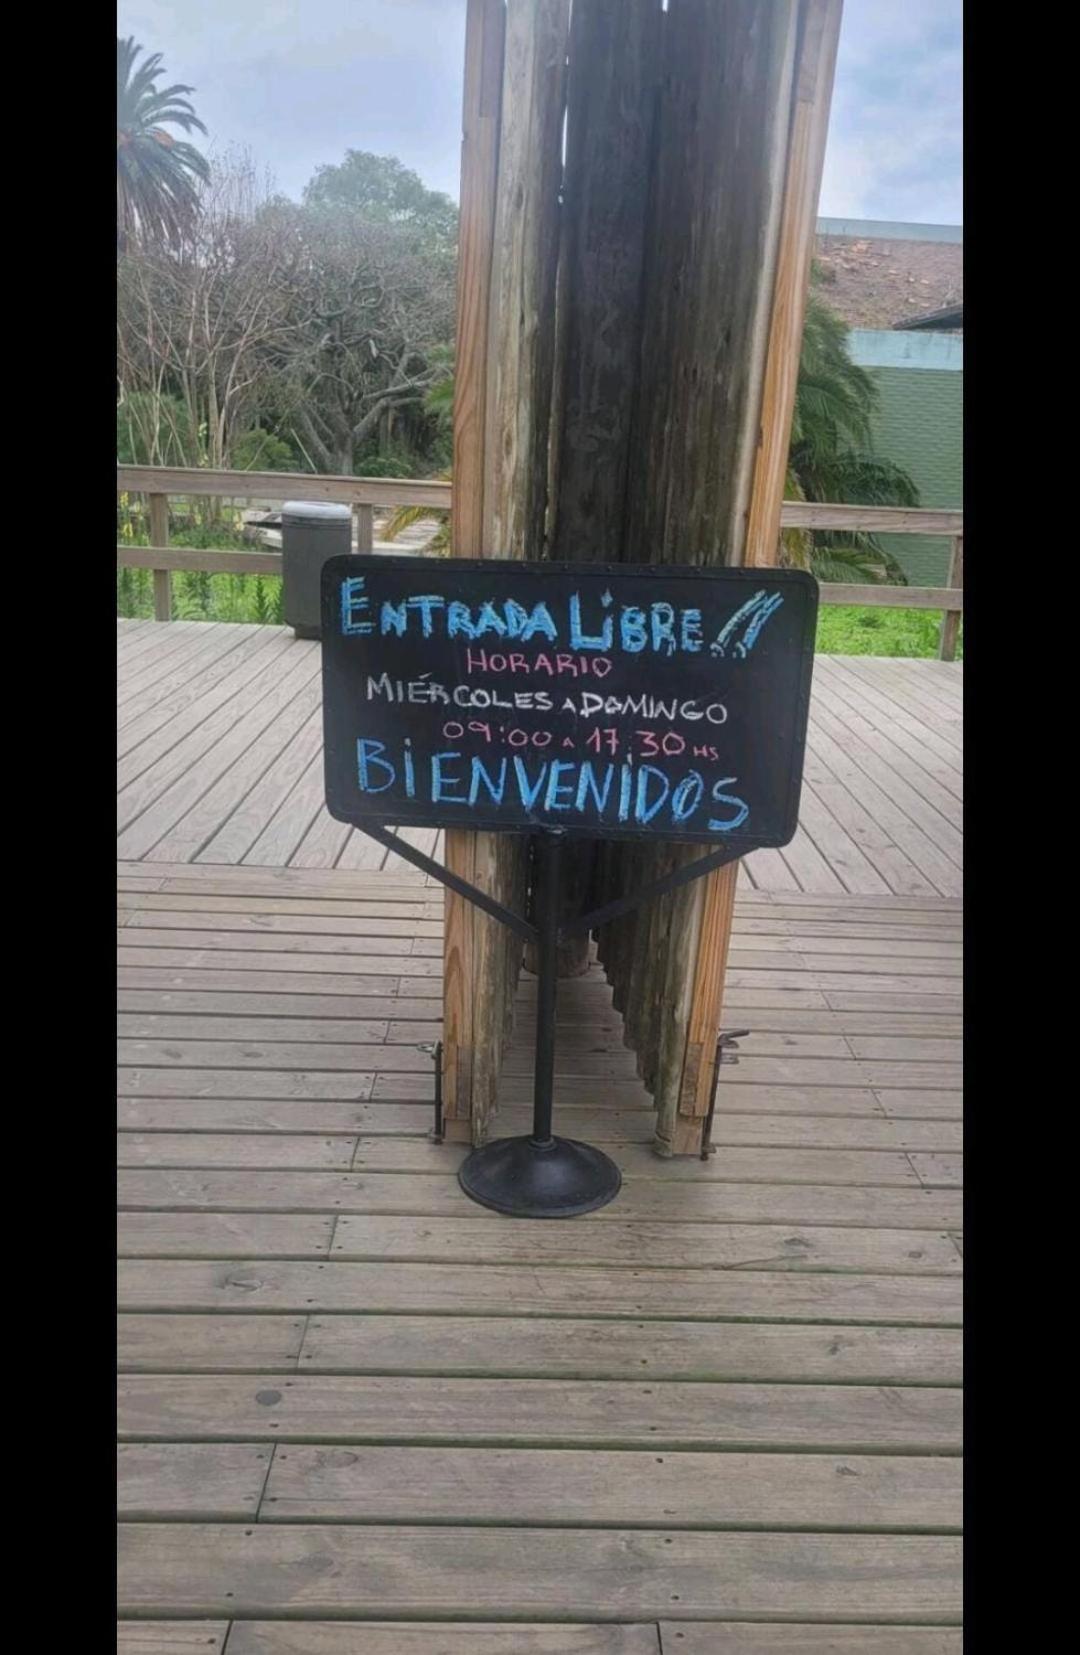 ENTRADA LiBRE!!
HORARIO
MIÉRCOLES A DOMINGO
09:00 A 17:30 HS
BiENVENiDOS